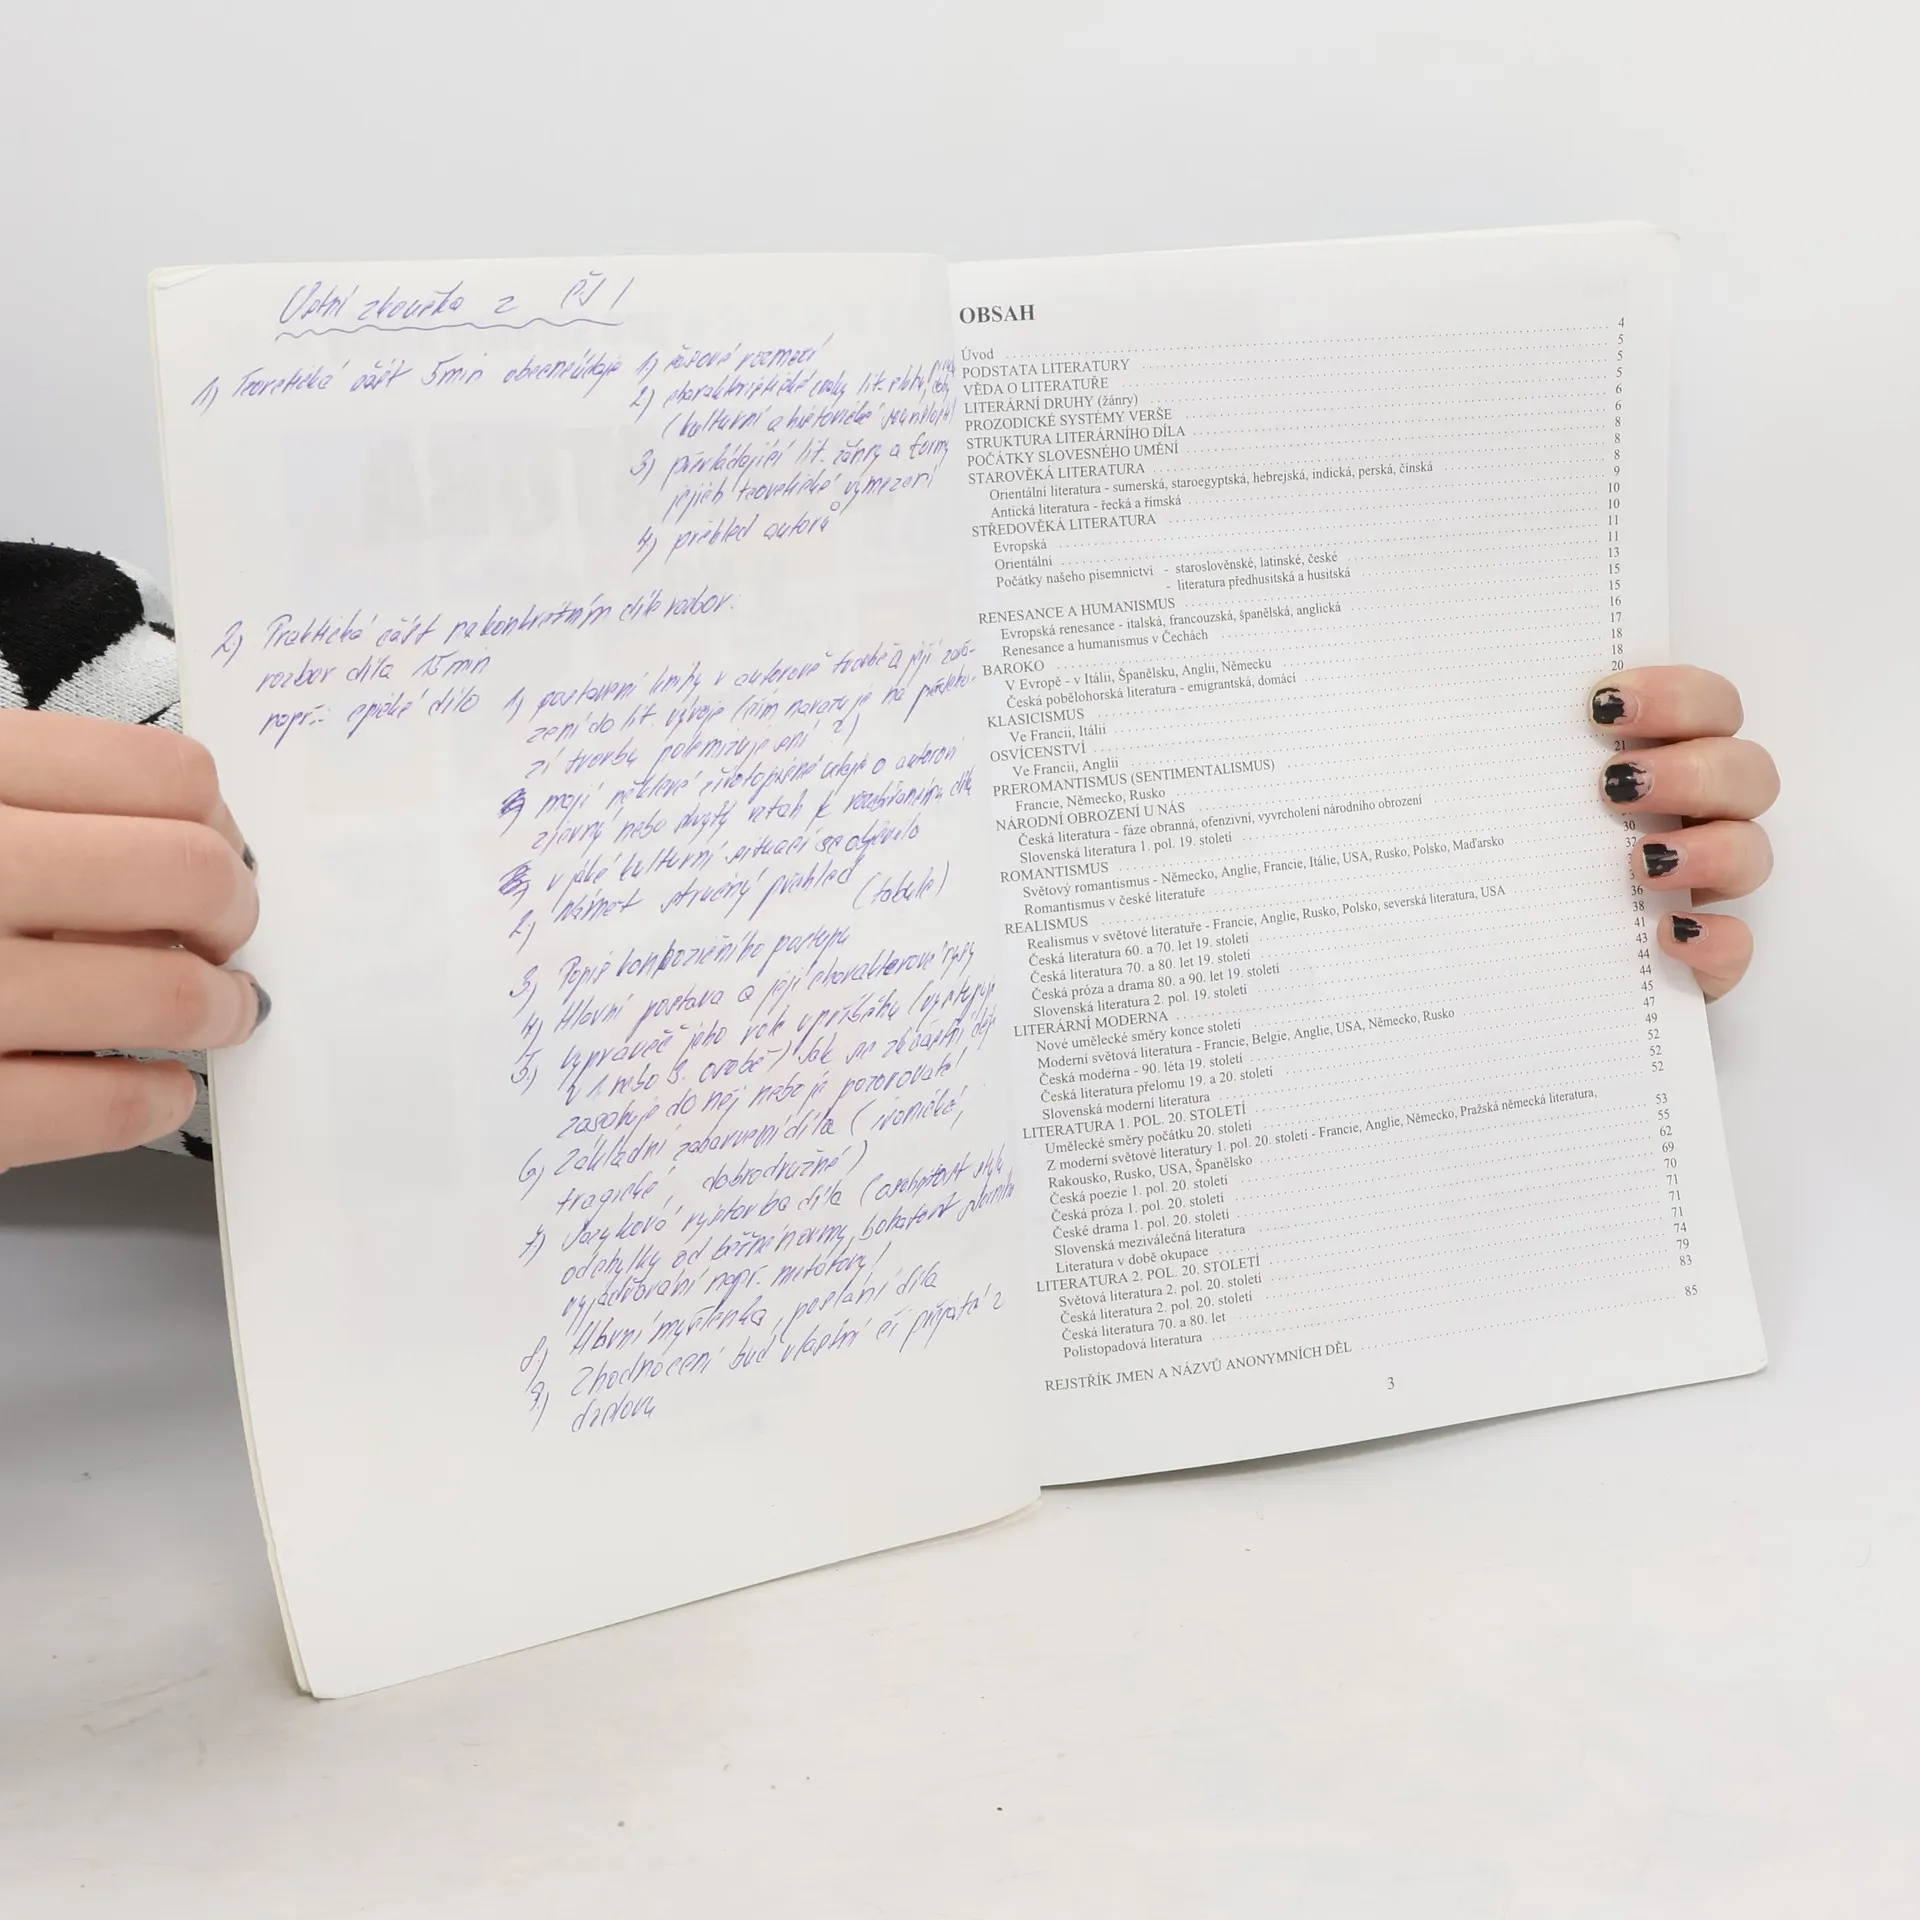 Ústní zkouška z ČJ !
1) Teoretická část 5min obecné údaje
1) časové rozmezí
2) charakteristické znaky lit.
(kulturní a historické souvislosti)
3) převládající lit. žánry a formy
jejich teoretické vymezení
4) přehled autorů
2) Praktická část na konkrétním díle rozbor.
rozbor díla 15min
např.: epické dílo
1) postavení knihy v autorově tvorbě a její zařa-
zení do lit. vývoje (čím navazuje na předcho-
zí tvorbu polemizuje s ní ?)
mají některé životopisné údaje o autorovi
zjevný nebo skrytý vztah k rozebíranému dílu
v jaké kulturní situaci se objevilo
2) námět stručný přehled (tabule)
3) Popis kompozičního postupu
4) Hlavní postava a její charakterové rysy
5.) vypravěč jeho role v příběhu (vystupuje
v 1. nebo 3. osobě) Jak se zúčastní děje
zasahuje do něj nebo je pozorovatel
6) Základní zabarvení díla (ironické,
tragické, dobrodružné)
7) Jazyková výstavba díla (osobitost stylu
odchylky od běžné normy, bohatost slovníku
vyjadřování např. metafory!
8) Hlavní myšlenka, poslání díla
9.) Zhodnocení buď vlastní či přijaté z
OBSAH
Úvod 4
PODSTATA LITERATURY 5
VĚDA O LITERATUŘE 5
LITERÁRNÍ DRUHY (žánry) 5
PROZODICKÉ SYSTÉMY VERŠE 6
STRUKTURA LITERÁRNÍHO DÍLA 6
POČÁTKY SLOVESNÉHO UMĚNÍ 8
STAROVĚKÁ LITERATURA 8
Orientální literatura - sumerská, staroegyptská, hebrejská, indická, perská, čínská 8
Antická literatura - řecká a římská 9
STŘEDOVĚKÁ LITERATURA 10
Evropská 10
Orientální 11
Počátky našeho písemnictví - staroslověnské, latinské, české 11
- literatura předhusitská a husitská 13
RENESANCE A HUMANISMUS 15
Evropská renesance - italská, francouzská, španělská, anglická 15
Renesance a humanismus v Čechách 16
BAROKO 17
V Evropě - v Itálii, Španělsku, Anglii, Německu 18
Česká pobělohorská literatura - emigrantská, domácí 18
KLASICISMUS 20
Ve Francii, Itálii
OSVÍCENSTVÍ
Ve Francii, Anglii
PREROMANTISMUS (SENTIMENTALISMUS)
Francie, Německo, Rusko 21
NÁRODNÍ OBROZENÍ U NÁS
Česká literatura - fáze obranná, ofenzivní, vyvrcholení národního obrození
Slovenská literatura 1. pol. 19. století
ROMANTISMUS 30
Světový romantismus - Německo, Anglie, Francie, Itálie, USA, Rusko, Polsko, Maďarsko 32
Romantismus v české literatuře
REALISMUS
Realismus v světové literatuře - Francie, Anglie, Rusko, Polsko, severská literatura, USA 36
Česká literatura 60. a 70. let 19. století 38
Česká literatura 70. a 80. let 19. století 41
Česká próza a drama 80. a 90. let 19. století 43
Slovenská literatura 2. pol. 19. století 44
LITERÁRNÍ MODERNA 44
Nové umělecké směry konce století 45
Moderní světová literatura - Francie, Belgie, Anglie, USA, Německo, Rusko 47
Česká moderna - 90. léta 19. století 49
Česká literatura přelomu 19. a 20. století 52
Slovenská moderní literatura 52
LITERATURA 1. POL. 20. STOLETÍ 52
Umělecké směry počátku 20. století
Z moderní světové literatury 1. pol. 20. století - Francie, Anglie, Německo, Pražská německá literatura, 53
Rakousko, Rusko, USA, Španělsko 55
Česká poezie 1. pol. 20. století 62
Česká próza 1. pol. 20. století 69
České drama 1. pol. 20. století 70
Slovenská meziválečná literatura 71
Literatura v době okupace 71
LITERATURA 2. POL. 20. STOLETÍ 71
Světová literatura 2. pol. 20. století 74
Česká literatura 2. pol. 20. století 79
Česká literatura 70. a 80. let 83
Polistopadová literatura
REJSTŘÍK JMEN A NÁZVŮ ANONYMNÍCH DĚL 85
3